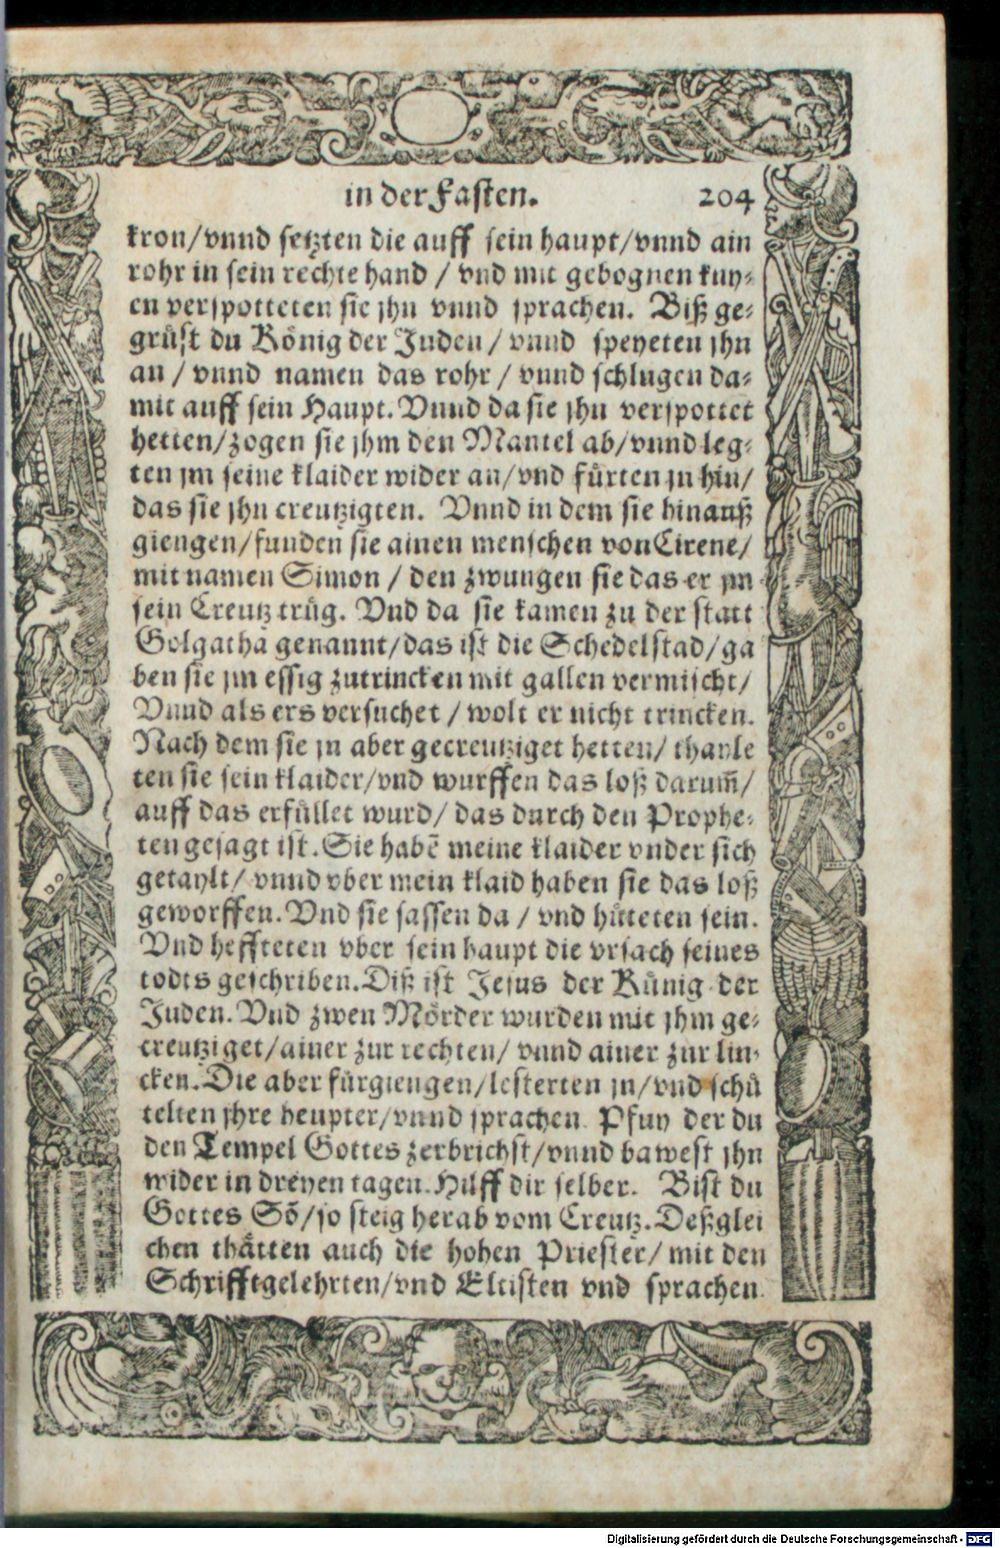 in der Fasten. 204
kron/vnnd setzten die auff sein haupt/vnnd ain
rohr in sein rechte hand / vnd mit gebognen kny⸗
en verspotteten sie jhn vnnd sprachen. Biß ge⸗
grüst du König der Juden / vnnd speyeten jhn
an / vnnd namen das rohr / vnnd schlugen da⸗
mit auff sein Haupt. Vnnd da sie jhn verspottet
hetten/zogen sie jhm den Mantel ab/vnnd leg⸗
ten jm seine klaider wider an/vnd fürten jn hin/
das sie jhn creutzigten. Vnnd in dem sie hinauß
giengen/funden sie ainen menschen von Cirene/
mit namen Simon / den zwungen sie das er jm
sein Creutz trůg. Vnd da sie kamen zu der statt
Golgatha genannt/das ist die Schedelstad/ga
ben sie jm essig zutrincken mit gallen vermischt/
Vnnd als ers versuchet / wolt er nicht trincken.
Nach dem sie jn aber gecreutziget hetten/ thayle
ten sie sein klaider/vnd wurffen das loß darum̃/
auff das erfüllet wurd/ das durch den Prophe⸗
ten gesagt ist. Sie habẽ meine klaider vnder sich
getaylt/ vnnd vber mein klaid haben sie das loß
geworffen. Vnd sie sassen da / vnd hůteten sein.
Vnd heffteten vber sein haupt die vrsach seines
todts geschriben. Diß ist Jesus der Künig der
Juden. Vnd zwen Mörder wurden mit jhm ge⸗
creutziget/ainer zur rechten/ vnnd ainer zur lin⸗
cken. Die aber fürgiengen/lesterten jn/vnd schů
telten jhre heupter/vnnd sprachen. Pfuy der du
den Tempel Gottes zerbrichst/vnnd bawest jhn
wider in dreyen tagen. Hilff dir selber. Bist du
Gottes Sõ/so steig herab vom Creutz. Deßglei
chen thätten auch die hohen Priester/ mit den
Schrifftgelehrten/vnd Eltisten vnd sprachen.
Digitalisierung gefördert durch die Deutsche Forschungsgemeinschaft - DFG